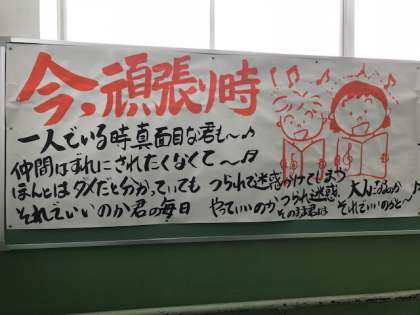 今、頑張り時
一人でいる時真面目な君も〜♪
仲間はずれにされたくなくて〜♬
ほんとはダメだと分かっていても
それでいいのか君の毎日
つられて迷惑かけてしまう
やっていいのかつられ迷惑
そのまま君は
大人になるのか
それでいいのかと〜♪